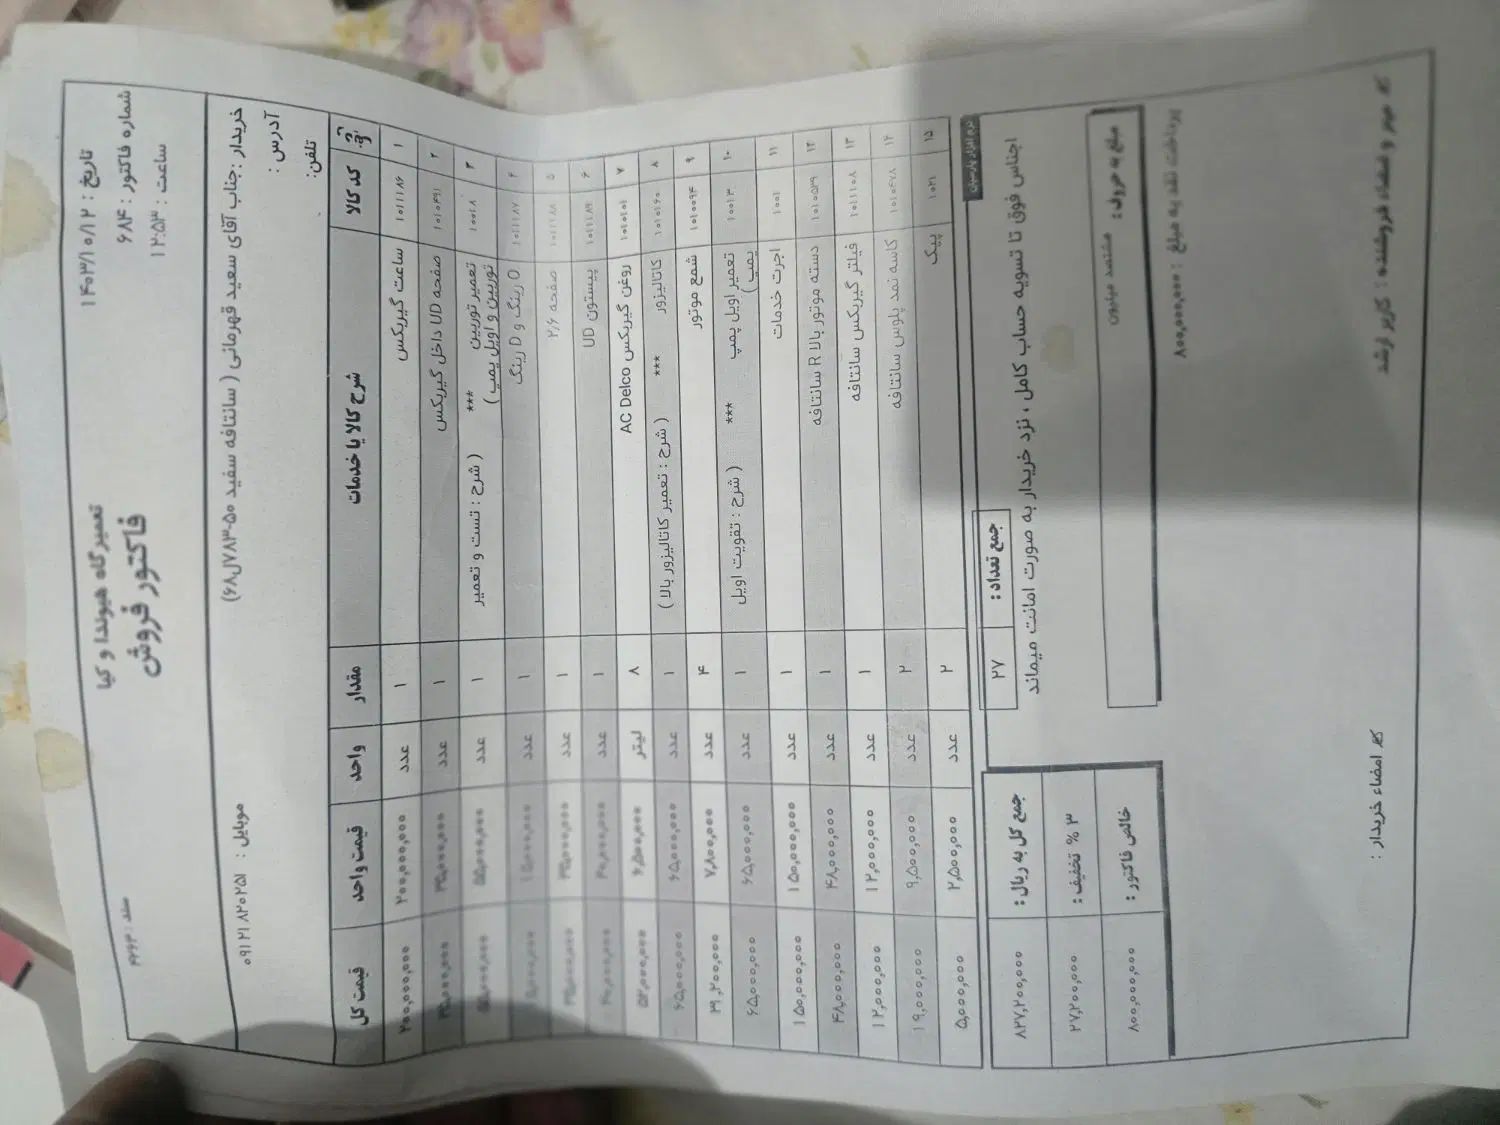 تعمیرگاه هیوندا و کیا
فاکتور فروش
تاریخ : ۱۴۰۳/۱۰/۱۲
شماره فاکتور : ۶۸۴
ساعت : ۱۲:۵۳
سند : ۴۶۶۳
خریدار : جناب آقای سعید قهرمانی ( سانتافه سفید ۵۰-۷۸۳ل۶۸)
موبایل : ۰۹۱۲۱۸۲۰۲۵۱
آدرس :
تلفن:
کد کالا شرح کالا یا خدمات مقدار واحد قیمت واحد قیمت کل
۱ ۱۰۱۱۱۸۶ ساعت گیربکس ۱ عدد ۲۰۰,۰۰۰,۰۰۰ ۲۰۰,۰۰۰,۰۰۰
۲ ۱۰۱۰۴۹۱ صفحه UD داخل گیربکس ۱ عدد
۳ ۱۰۰۱۸ تعمیر توربین *** ( شرح : تست و تعمیر ۱ عدد ۵۵,۰۰۰,۰۰۰ ۵۵,۰۰۰,۰۰۰
توربین و اویل پمپ )
۴ ۱۰۱۱۱۸۷ O رینگ و D رینگ ۱ عدد ۱۵,۰۰۰,۰۰۰ ۱۵,۰۰۰,۰۰۰
۵ ۱۰۱۱۱۸۸ صفحه ۲/۶ ۱ عدد
۶ ۱۰۱۱۱۸۹ پیستون UD ۱ عدد ۴۰,۰۰۰,۰۰۰ ۴۰,۰۰۰,۰۰۰
۷ ۱۰۱۰۱۰۱ روغن گیربکس AC Delco ۸ لیتر ۶,۵۰۰,۰۰۰ ۵۲,۰۰۰,۰۰۰
۸ ۱۰۱۰۱۶۰ کاتالیزور *** ( شرح : تعمیر کاتالیزور بالا ) ۱ عدد ۶۵,۰۰۰,۰۰۰ ۶۵,۰۰۰,۰۰۰
۹ ۱۰۱۰۰۹۴ شمع موتور ۴ عدد ۷,۸۰۰,۰۰۰ ۳۱,۲۰۰,۰۰۰
۱۰ ۱۰۰۱۳ تعمیر اویل پمپ *** ( شرح : تقویت اویل ۱ عدد ۶۵,۰۰۰,۰۰۰ ۶۵,۰۰۰,۰۰۰
پمپ )
۱۱ ۱۰۰۱ اجرت خدمات ۱ عدد ۱۵۰,۰۰۰,۰۰۰ ۱۵۰,۰۰۰,۰۰۰
۱۲ ۱۰۱۰۵۳۹ دسته موتور بالا R سانتافه ۱ عدد ۴۸,۰۰۰,۰۰۰ ۴۸,۰۰۰,۰۰۰
۱۳ ۱۰۱۱۱۰۸ فیلتر گیربکس سانتافه ۱ عدد ۱۲,۰۰۰,۰۰۰ ۱۲,۰۰۰,۰۰۰
۱۴ ۱۰۱۰۴۷۸ کاسه نمد پلوس سانتافه ۲ عدد ۹,۵۰۰,۰۰۰ ۱۹,۰۰۰,۰۰۰
۱۵ ۱۰۲۱ پیک ۲ عدد ۲,۵۰۰,۰۰۰ ۵,۰۰۰,۰۰۰
نرم افزار پارسیان
جمع تعداد : ۲۷
جمع کل به ریال : ۸۲۷,۲۰۰,۰۰۰
اجناس فوق تا تسویه حساب کامل ، نزد خریدار به صورت امانت میماند
۳ % تخفیف : ۲۷,۲۰۰,۰۰۰
مبلغ به حروف : هشتصد میلیون
خالص فاکتور : ۸۰۰,۰۰۰,۰۰۰
پرداخت نقد به مبلغ : ۸۰۰,۰۰۰,۰۰۰
مهر و امضاء فروشنده : کاربر ارشد
امضاء خریدار :